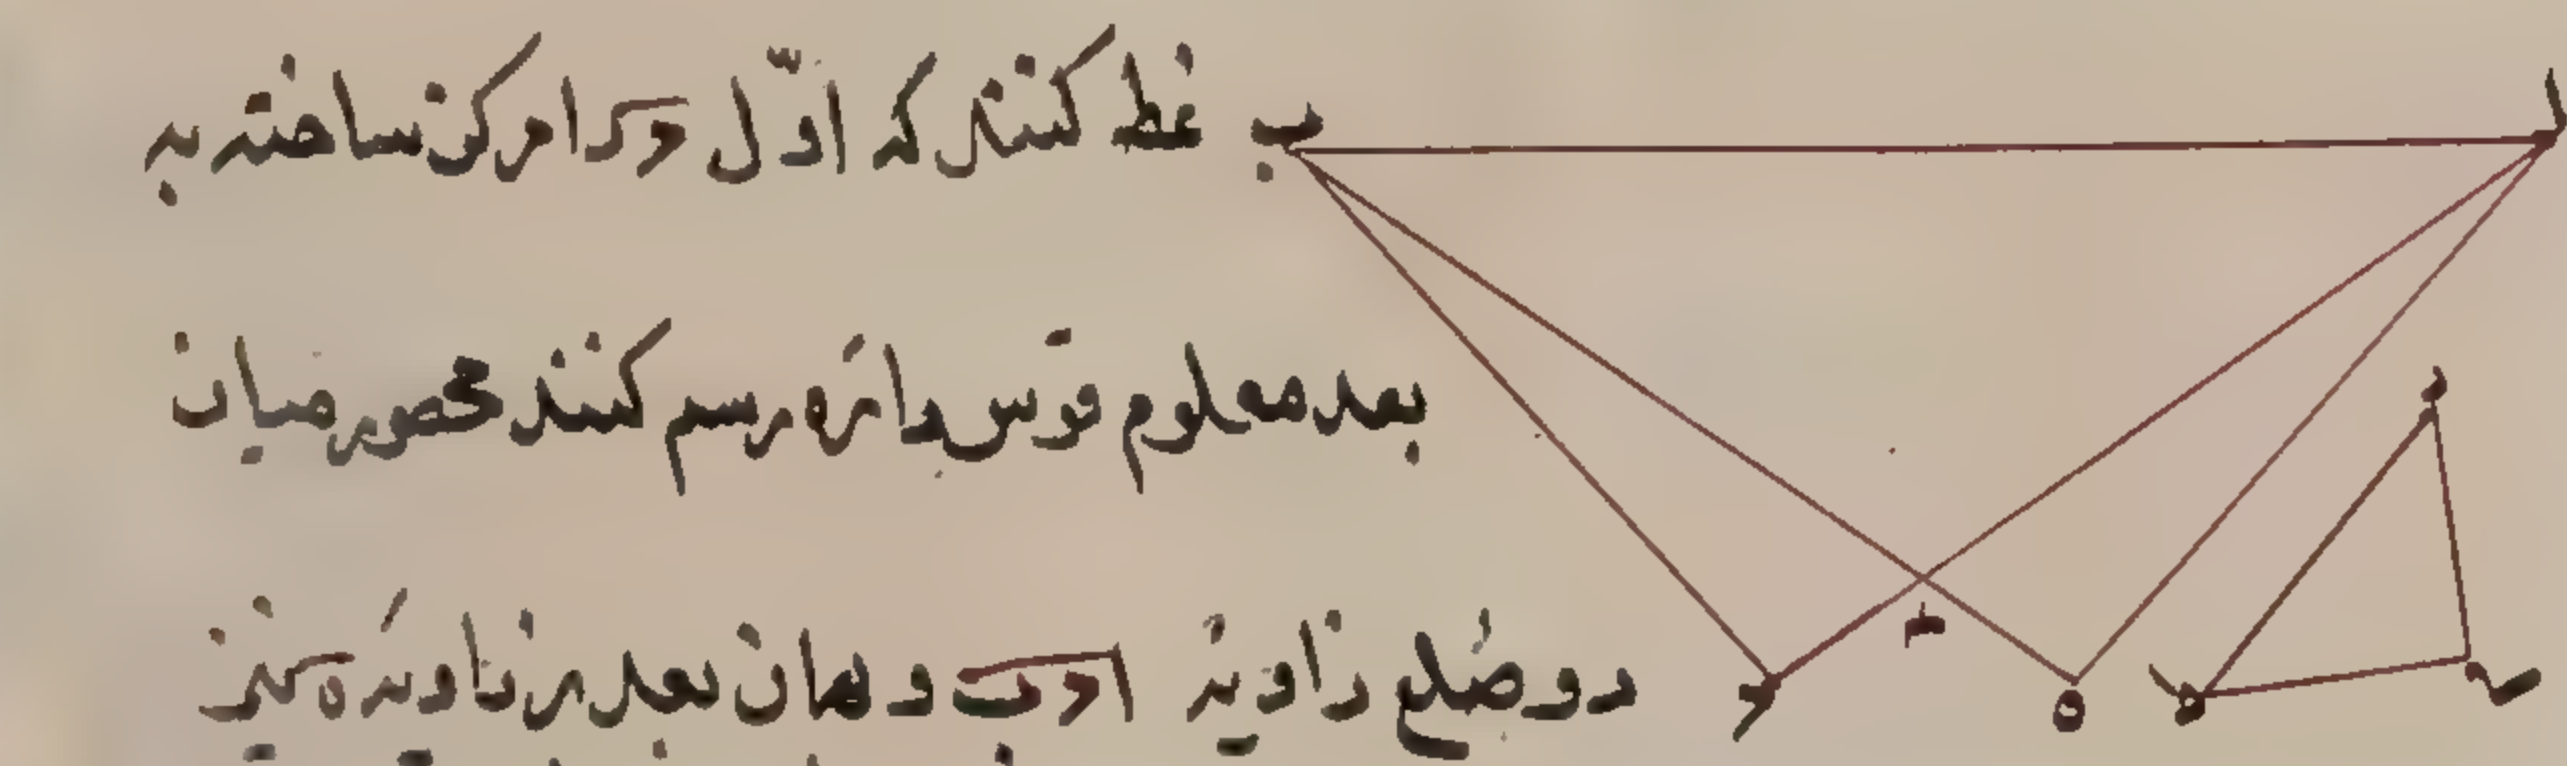 ب غط کنند که اوّل د را مرکز ساخته به
بعد معلوم قوس دائره رسم کنند محصور میان
دو ضلع زاویۀ ا د ب و همان بعد بر زاویۀ ه نیز